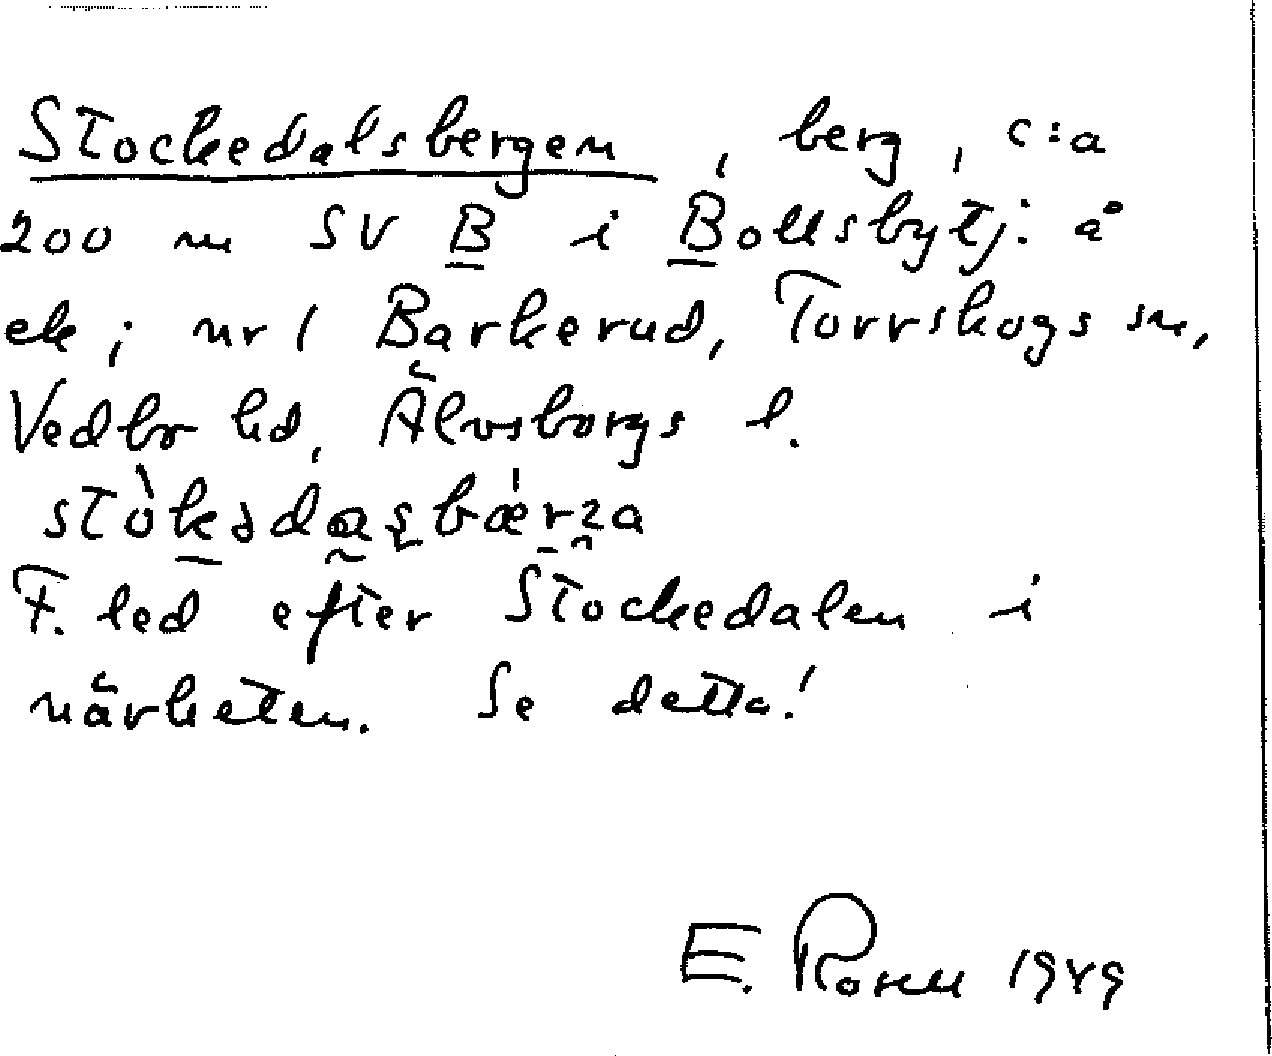 Stockedalsbergen, berg, c:a
200 m SV B i Bollsbytj: å
ek; nr 1 Barkerud, Torrskogs sn,
Vedbo hd, Älvsborgs l.
F. led efter Stockedalen i
närheten. Se detta!
E. Rosell 1949